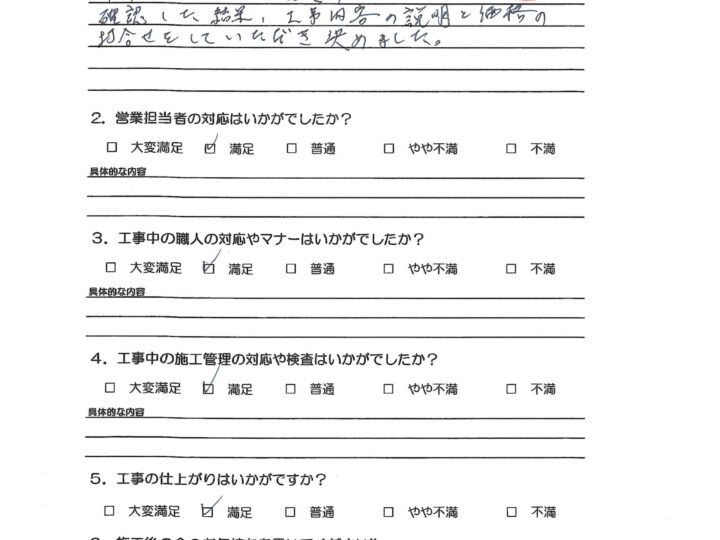 確認した結果、工事内容の説明と価格の
打合せをしていただき決めました。
2. 営業担当者の対応はいかがでしたか？
□ 大変満足 ☑ 満足 □ 普通 □ やや不満 □ 不満
具体的な内容
3. 工事中の職人の対応やマナーはいかがでしたか？
□ 大変満足 ☑ 満足 □ 普通 □ やや不満 □ 不満
具体的な内容
4. 工事中の施工管理の対応や検査はいかがでしたか？
□ 大変満足 ☑ 満足 □ 普通 □ やや不満 □ 不満
具体的な内容
5. 工事の仕上がりはいかがですか？
□ 大変満足 ☑ 満足 □ 普通 □ やや不満 □ 不満